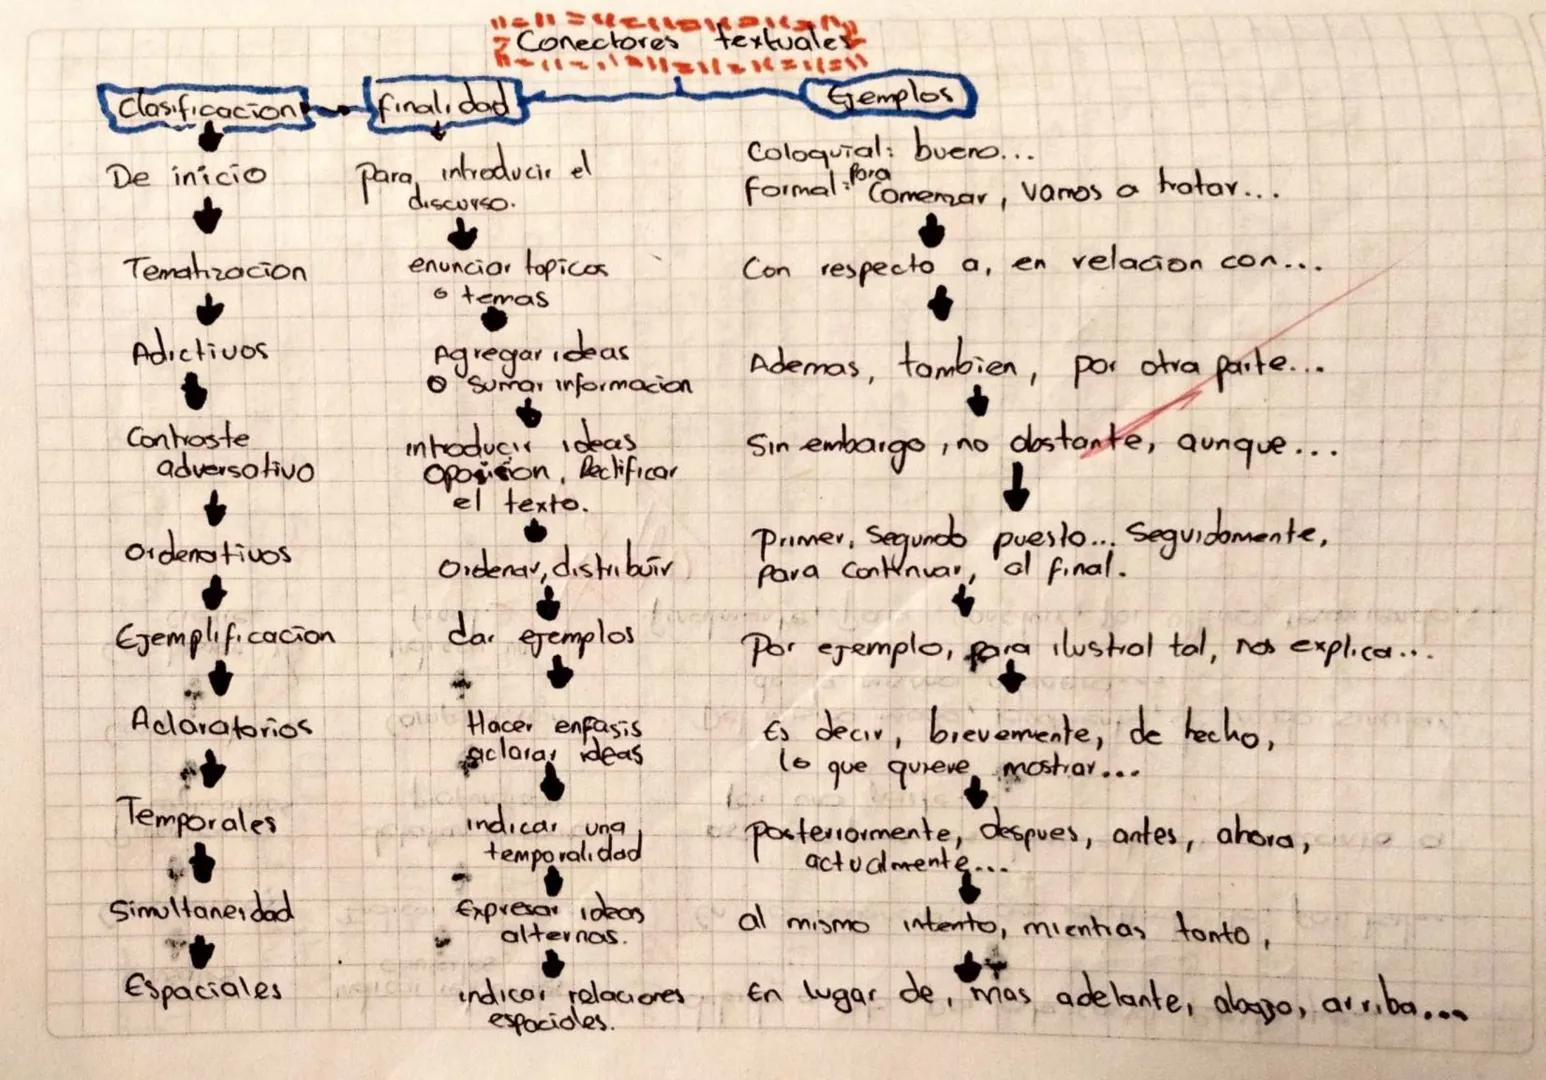 Conectores textuales
Clasificacion
finalidad
Ejemplos
De inicio
Para introducir el
discurso.
Coloquial: bueno...
formal: Para Comenzar, vamos a tratar...
Tematizacion
enunciar topicos
o temas
Con respecto a, en relacion con...
Adictivos
Agregar ideas
o sumar informacion
Ademas, tambien, por otra parte...
Contraste
adversativo
introducir ideas
oposicion, Rectificar
el texto.
Sin embargo, no obstante, aunque...
Ordenativos
Ordenar, distribuir
Primer, Segundo puesto... Seguidamente,
para continuar, al final.
Ejemplificacion
dar ejemplos
Por ejemplo, para ilustral tal, nos explica...
Aclaratorios
Hacer enfasis
aclarar ideas
Es decir, brevemente, de hecho,
lo que quiere mostrar...
Temporales
indicar una
temporalidad
Posteriormente, despues, antes, ahora,
actualmente...
Simultaneidad
Expresar ideas
alternas.
al mismo intento, mientras tanto,
Espaciales
indicar relaciones
espaciales.
En lugar de, mas adelante, abajo, arriba...